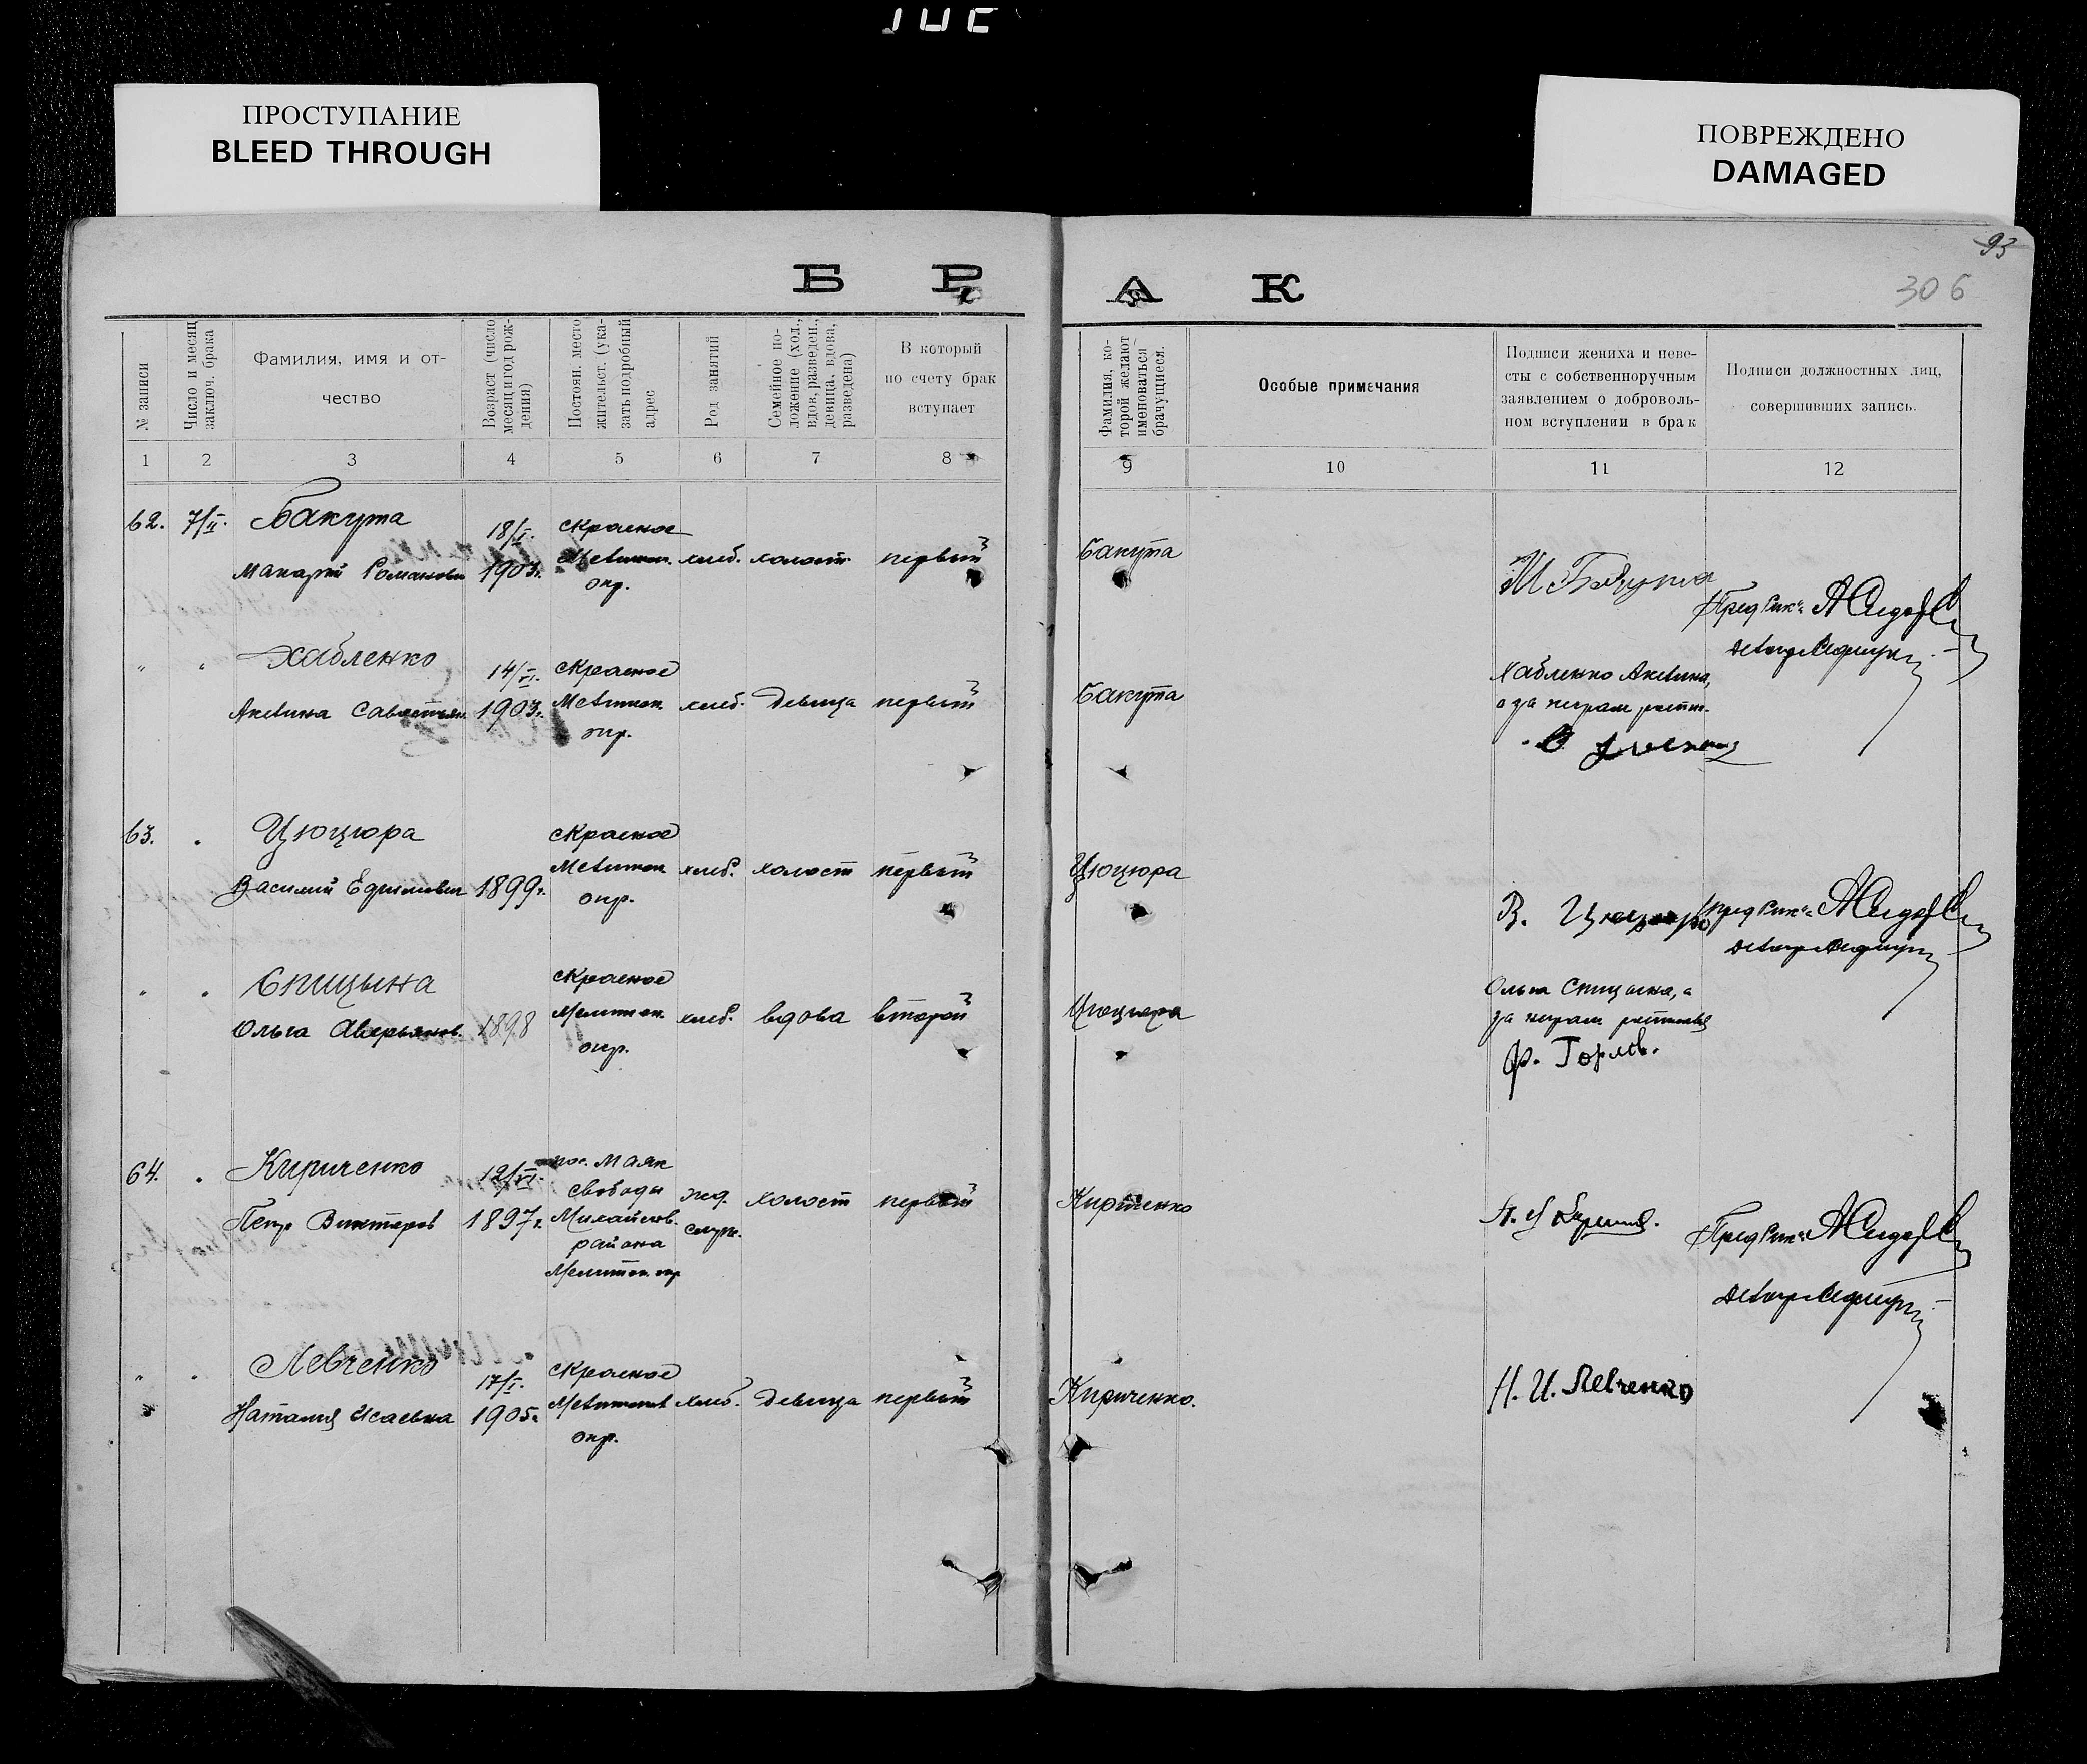 ПРОСТУПАНИЕ
BLEED THROUGH
ПОВРЕЖДЕНО
DAMAGED
93
306
Б Р А К
№ записи
Число и месяц
заключ. брака
Фамилия, имя и от-
чество
Возраст (число
месяц и год рож-
дения)
Постоян. место
жительст. (ука-
зать подробный
адрес
Род занятий
Семейное по-
ложение (хол.,
вдов, разведен.,
девица, вдова,
разведена)
В который
по счету брак
вступает
Фамилия, ко-
торой желают
именоваться
брачущиеся.
Особые примечания
Подписи жениха и неве-
сты с собственноручным
заявлением о доброволь-
ном вступлении в брак
Подписи должностных лиц,
совершивших запись.
1 2 3 4 5 6 7 8 9 10 11 12
62. 7/II. Бакута
18/I. с Красное
Макарий Романови 1903г. хлеб. холост первый Бакута
окр.
Пред Рик"а
" " Хабленко
14/VI. с Красное
Савастьян. 1903г. Мелитоп. хлеб. девица первый Бакута
окр.
Хабленко Акелина,
а за неграм
63. . Цюцюра с Красное
Василий Ефимович 1899г. Мелитоп хлеб. холост первый Цюцюра
окр.
В. Цюцюра Пред Рик"а
" . Спицына с Красное
Ольга Аверьянов. 1898 Мелитоп. хлеб. вдова второй Цюцюра
окр.
Ольга Спицына, а
за неграм
Ф. Горлов.
64. . Кириченко 12/VI. пос. Маяк
Свободы
Петр Викторов 1897г. Михайлов. жел. холост первый Кириченко
района служ.
Мелитоп. окр
Пред Рик"а
" . Левченко
17/I. с Красное
Наталия Исаевна 1905г. Мелитоп хлеб. девица первый Кириченко.
окр.
Н. И. Левченко